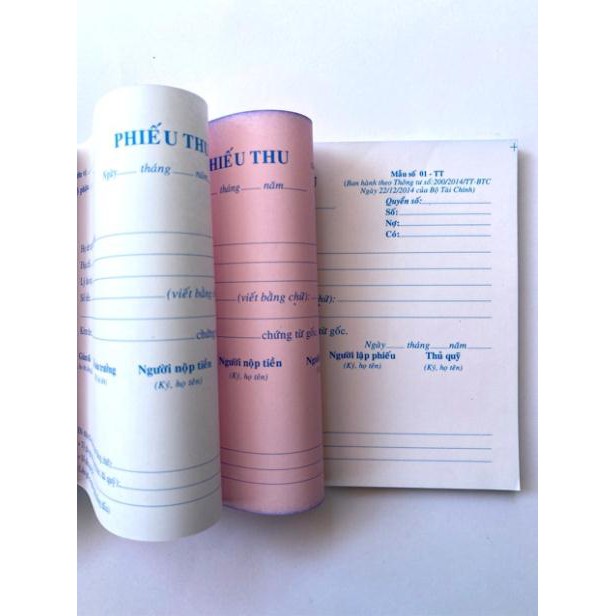 PHIẾU THU
Ngày tháng năm
(viết bằng
chứng
Người nộp tiền
(Ký, họ tên)
HIẾU THU
tháng năm
(viết bằng chữ):
chứng từ gốc.
Người nộp tiền
(Ký, họ tên)
Mẫu số 01 - TT
(Ban hành theo Thông tư số:200/2014/TT-BTC
Ngày 22/12/2014 của Bộ Tài Chính)
Quyển số:
Số:
Nợ:
Có:
chữ):
từ gốc.
Ngày tháng năm
Người lập phiếu Thủ quỹ
(Ký, họ tên) (Ký, họ tên)